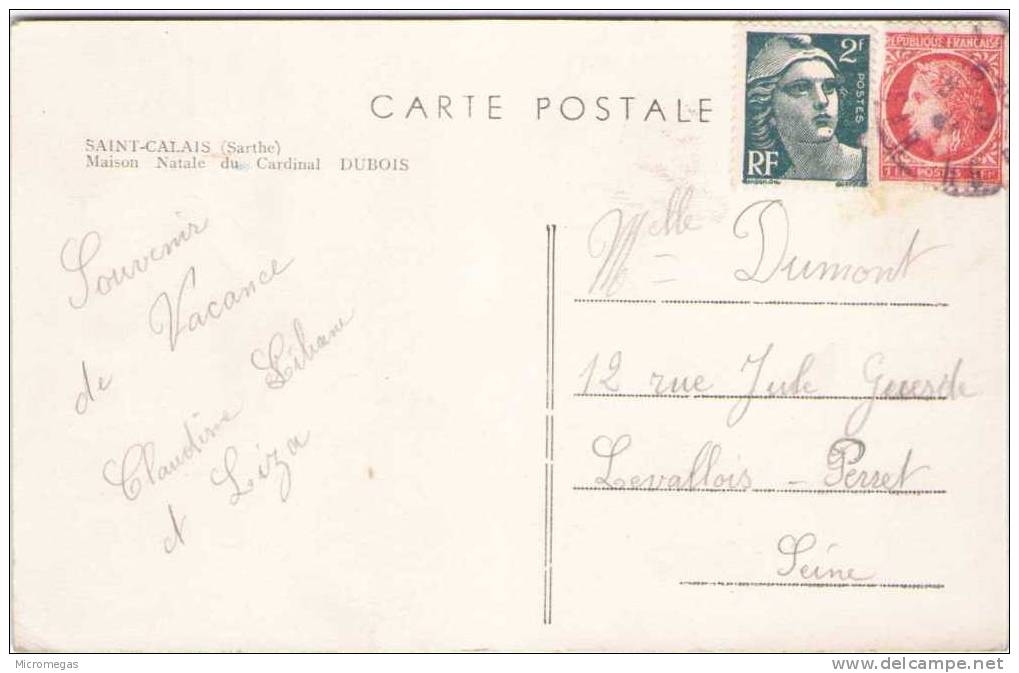 CARTE POSTALE
SAINT-CALAIS (Sarthe)
Maison Natale du Cardinal DUBOIS
2F
POSTES
RF
REPUBLIQUE FRANÇAISE
POSTES
Souvenir
de Vacance
Claudine Liliane
et Liza
Melle Dumont
12 rue Jule Guesde
Levallois - Perret
Seine
Micromegas
www.delcampe.net